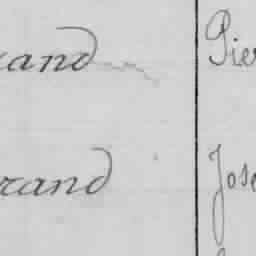 and Pier
rand Jose